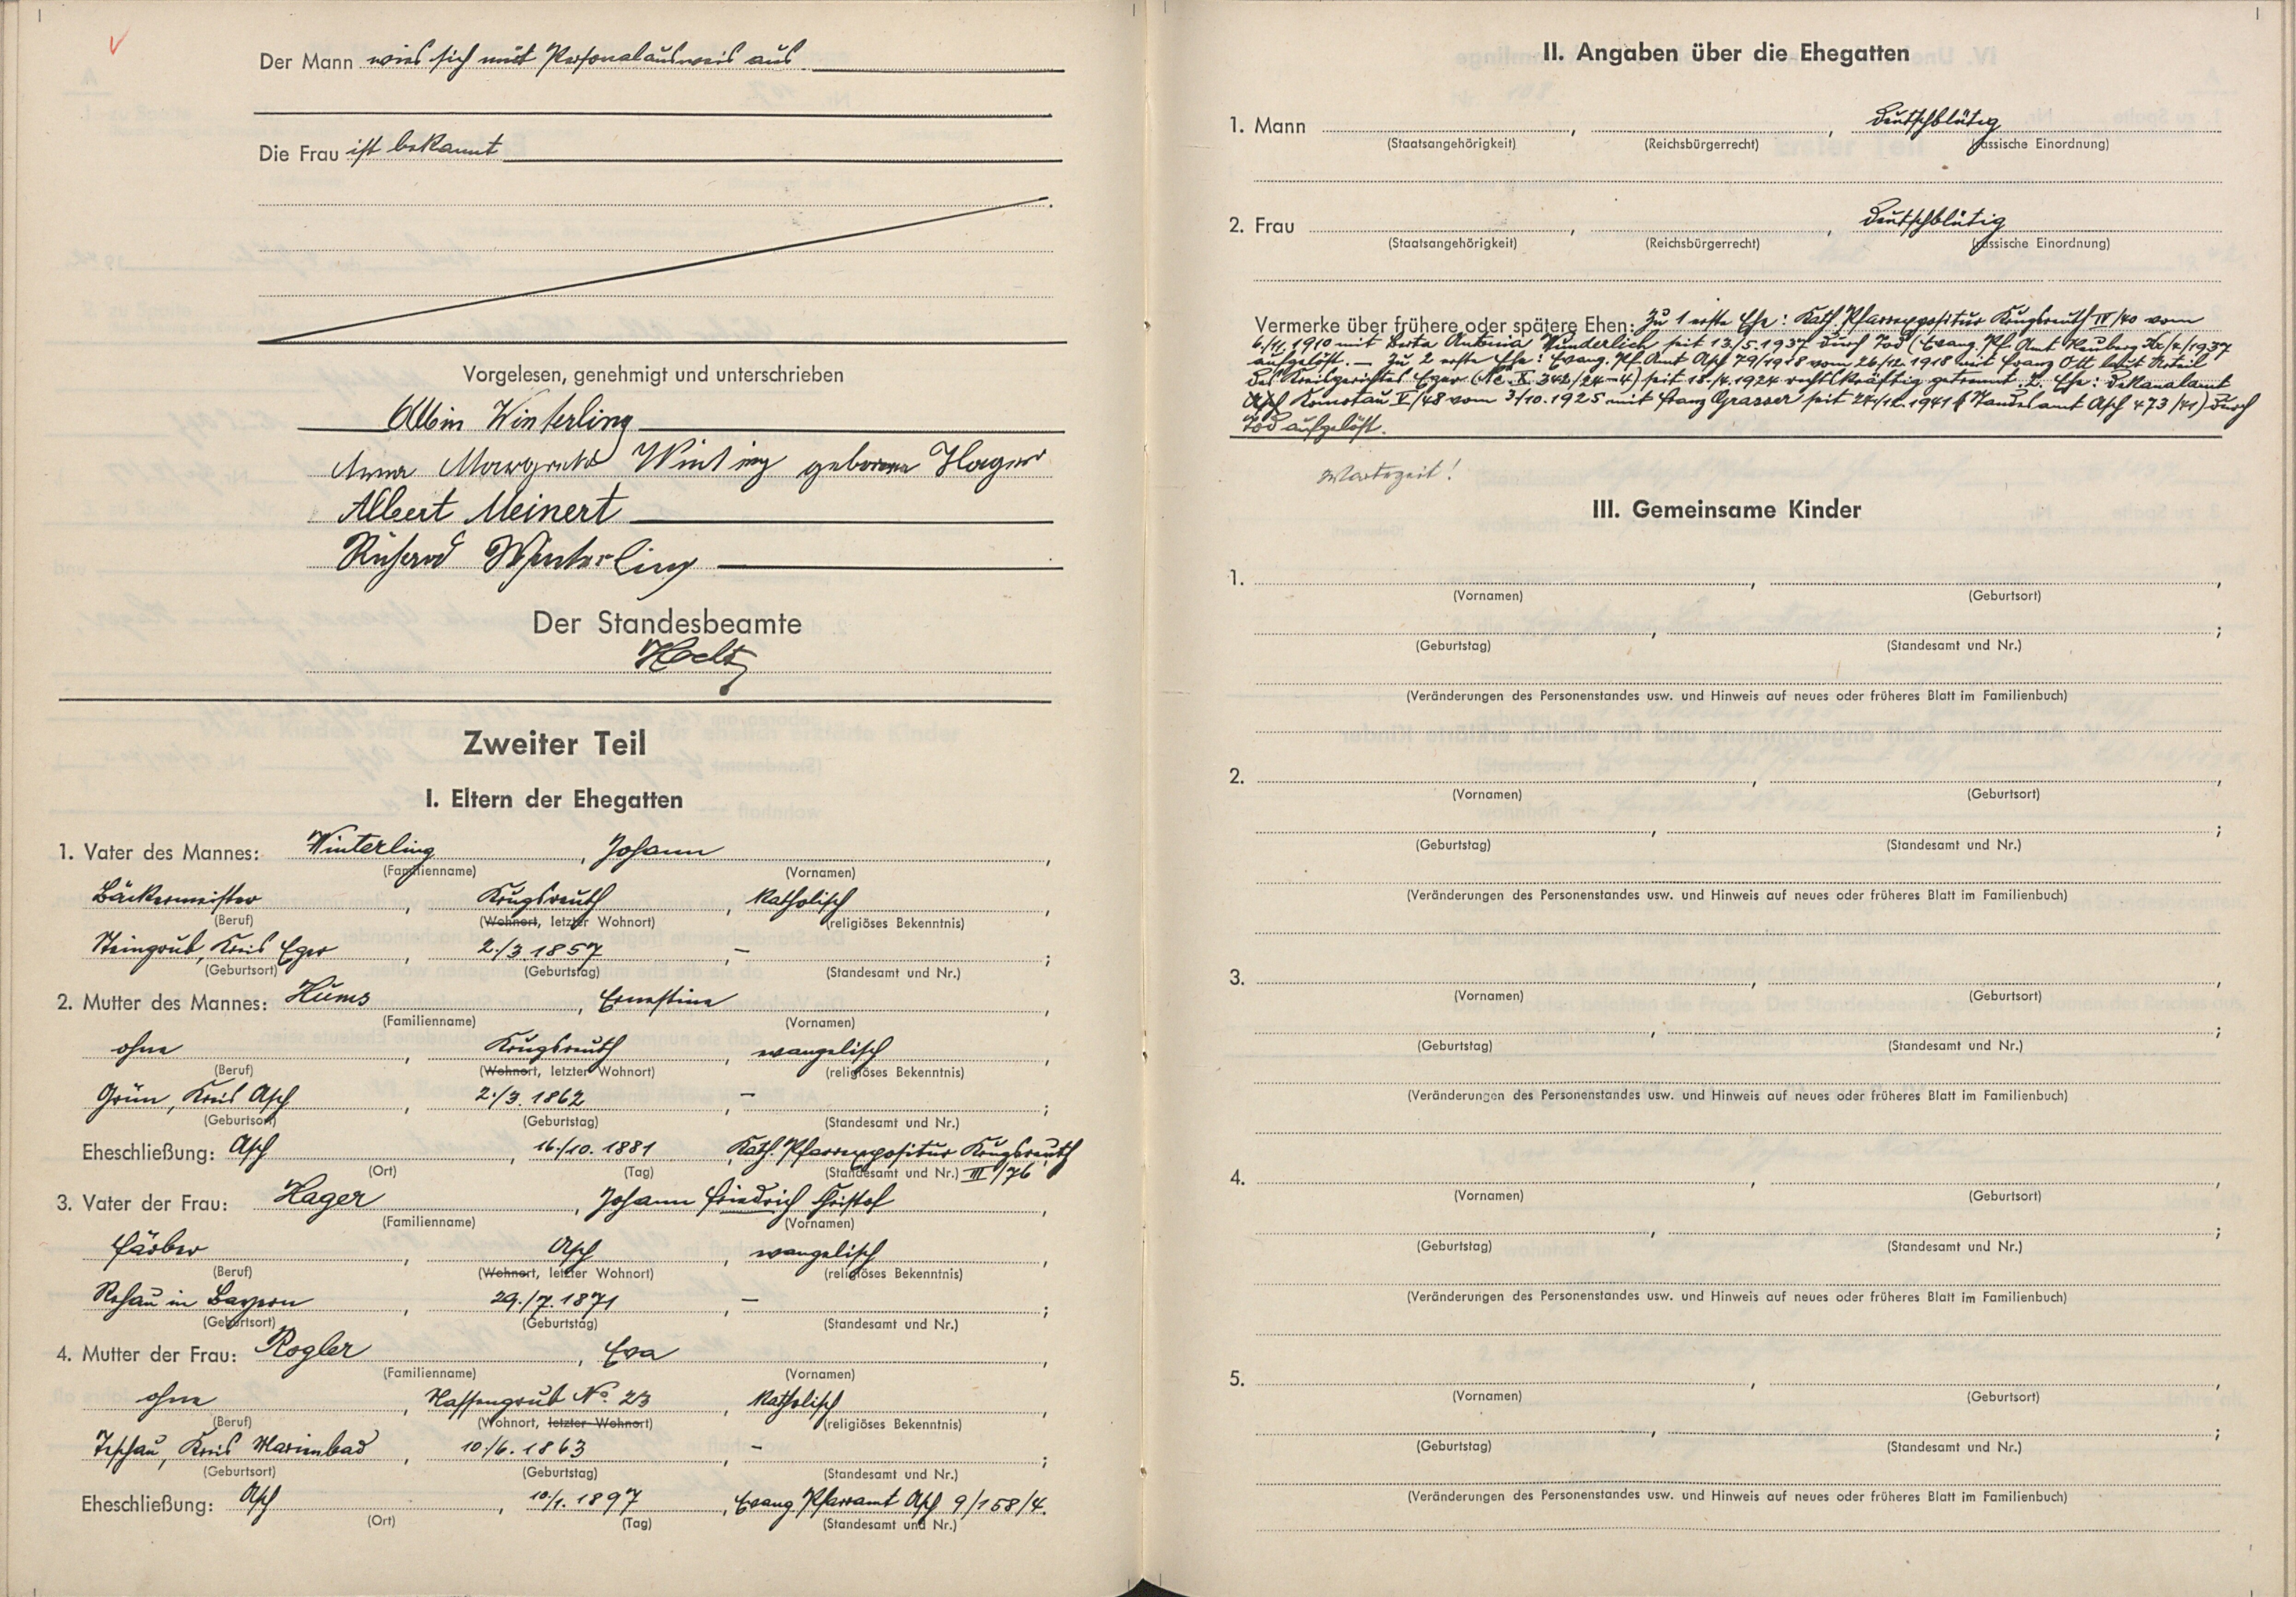 Der Mann wies sich mit Personalausweis aus
Die Frau ist bekannt
Vorgelesen, genehmigt und unterschrieben
Albin Winterling
Anna Margareta geborene Hager
Albert Meinert
Richard Winterling
Der Standesbeamte
Zweiter Teil
I. Eltern der Ehegatten
1. Vater des Mannes: Winterling, Johann,
(Familienname) (Vornamen)
Bäckermeister, Krugsreuth, katholisch,
(Beruf) (Wohnort, letzter Wohnort) (religiöses Bekenntnis)
Steingrub, Kreis Eger, 2./3. 1857, –;
(Geburtsort) (Geburtstag) (Standesamt und Nr.)
2. Mutter des Mannes: Hüms, Ernestine,
(Familienname) (Vornamen)
ohne, Krugsreuth, evangelisch,
(Beruf) (Wohnort, letzter Wohnort) (religiöses Bekenntnis)
Grün, Kreis Asch, 2./3. 1862, –;
(Geburtsort) (Geburtstag) (Standesamt und Nr.)
Eheschließung: Asch, 16./10. 1881, Kath. Pfarrexpositur Krugsreuth
(Ort) (Tag) (Standesamt und Nr.) III/76
3. Vater der Frau: Hager, Johann Friedrich Christof,
(Familienname) (Vornamen)
Färber, Asch, evangelisch,
(Beruf) (Wohnort, letzter Wohnort) (religiöses Bekenntnis)
Rehau in Bayern, 29./7. 1871, –;
(Geburtsort) (Geburtstag) (Standesamt und Nr.)
4. Mutter der Frau: Rogler, Eva,
(Familienname) (Vornamen)
ohne, No. 23, katholisch,
(Beruf) (Wohnort, letzter Wohnort) (religiöses Bekenntnis)
Kreis Marienbad, 10./6. 1863, –;
(Geburtsort) (Geburtstag) (Standesamt und Nr.)
Eheschließung: Asch, 10./1. 1897, Evang. Pfarramt Asch 9/158/4.
(Ort) (Tag) (Standesamt und Nr.)
II. Angaben über die Ehegatten
1. Mann , , deutschblütig
(Staatsangehörigkeit) (Reichsbürgerrecht) (rassische Einordnung)
2. Frau , , deutschblütig
(Staatsangehörigkeit) (Reichsbürgerrecht) (rassische Einordnung)
Vermerke über frühere oder spätere Ehen: Zu 1 erste Ehe: Kath. Pfarrexpositur Krugsreuth IV/40 vom
6./11. 1910 mit Berta Antonia Wunderlich seit 13./5. 1937 durch Tod (Evang. Pf. Amt Neuberg
aufgelöst. – Zu 2 erste Ehe: Evang. Pf. Amt Asch 79/1918 vom 26/12. 1918 mit Franz Ott laut Urteil
des Kreisgerichtes Eger (Nc. X 342/24–4) seit 18./4. 1924 rechtskräftig getrennt. 2. Ehe: Dekanalamt
Komotau V/48 vom 3/10. 1925 mit Franz Grasser seit 1941 (Standesamt Asch 473/41) durch
Tod aufgelöst.
Wartezeit!
III. Gemeinsame Kinder
1. , ,
(Vornamen) (Geburtsort)
, ;
(Geburtstag) (Standesamt und Nr.)
(Veränderungen des Personenstandes usw. und Hinweis auf neues oder früheres Blatt im Familienbuch)
2. , ,
(Vornamen) (Geburtsort)
, ;
(Geburtstag) (Standesamt und Nr.)
(Veränderungen des Personenstandes usw. und Hinweis auf neues oder früheres Blatt im Familienbuch)
3. , ,
(Vornamen) (Geburtsort)
, ;
(Geburtstag) (Standesamt und Nr.)
(Veränderungen des Personenstandes usw. und Hinweis auf neues oder früheres Blatt im Familienbuch)
4. , ,
(Vornamen) (Geburtsort)
, ;
(Geburtstag) (Standesamt und Nr.)
(Veränderungen des Personenstandes usw. und Hinweis auf neues oder früheres Blatt im Familienbuch)
5. , ,
(Vornamen) (Geburtsort)
, ;
(Geburtstag) (Standesamt und Nr.)
(Veränderungen des Personenstandes usw. und Hinweis auf neues oder früheres Blatt im Familienbuch)